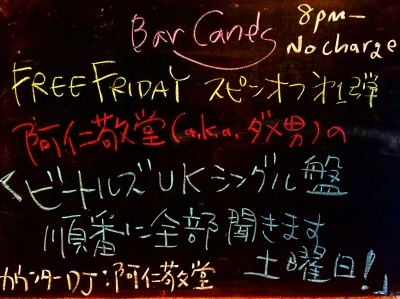 Bar Cands
8pm-
No charge
FREE FRIDAY スピンオフ 第12弾
阿仁敬堂(a.k.a,ダメ男)の
「ビートルズUKシングル盤
順番に全部聞きます
土曜日!」
カウンターDJ:阿仁敬堂